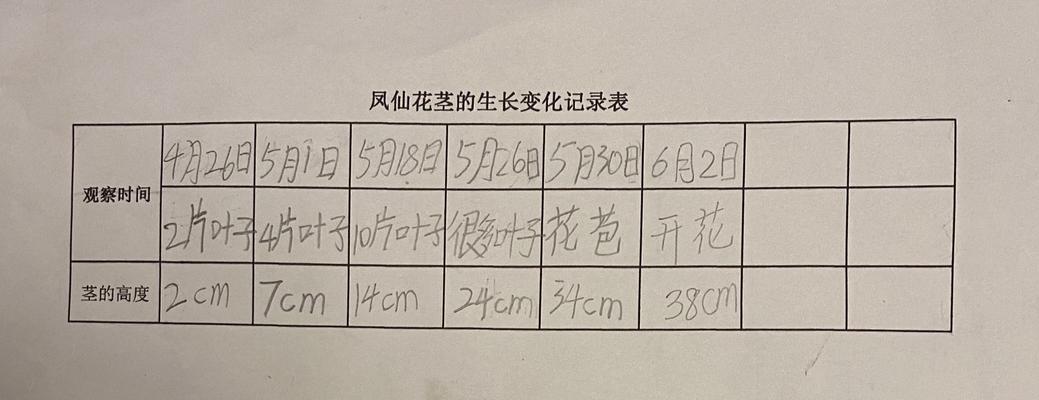 凤仙花茎的生长变化记录表
观察时间 4月26日 5月1日 5月18日 5月26日 5月30日 6月2日
2片叶子 4片叶子 10片叶子 很多叶子 花苞 开花
茎的高度 2cm 7cm 14cm 24cm 34cm 38cm